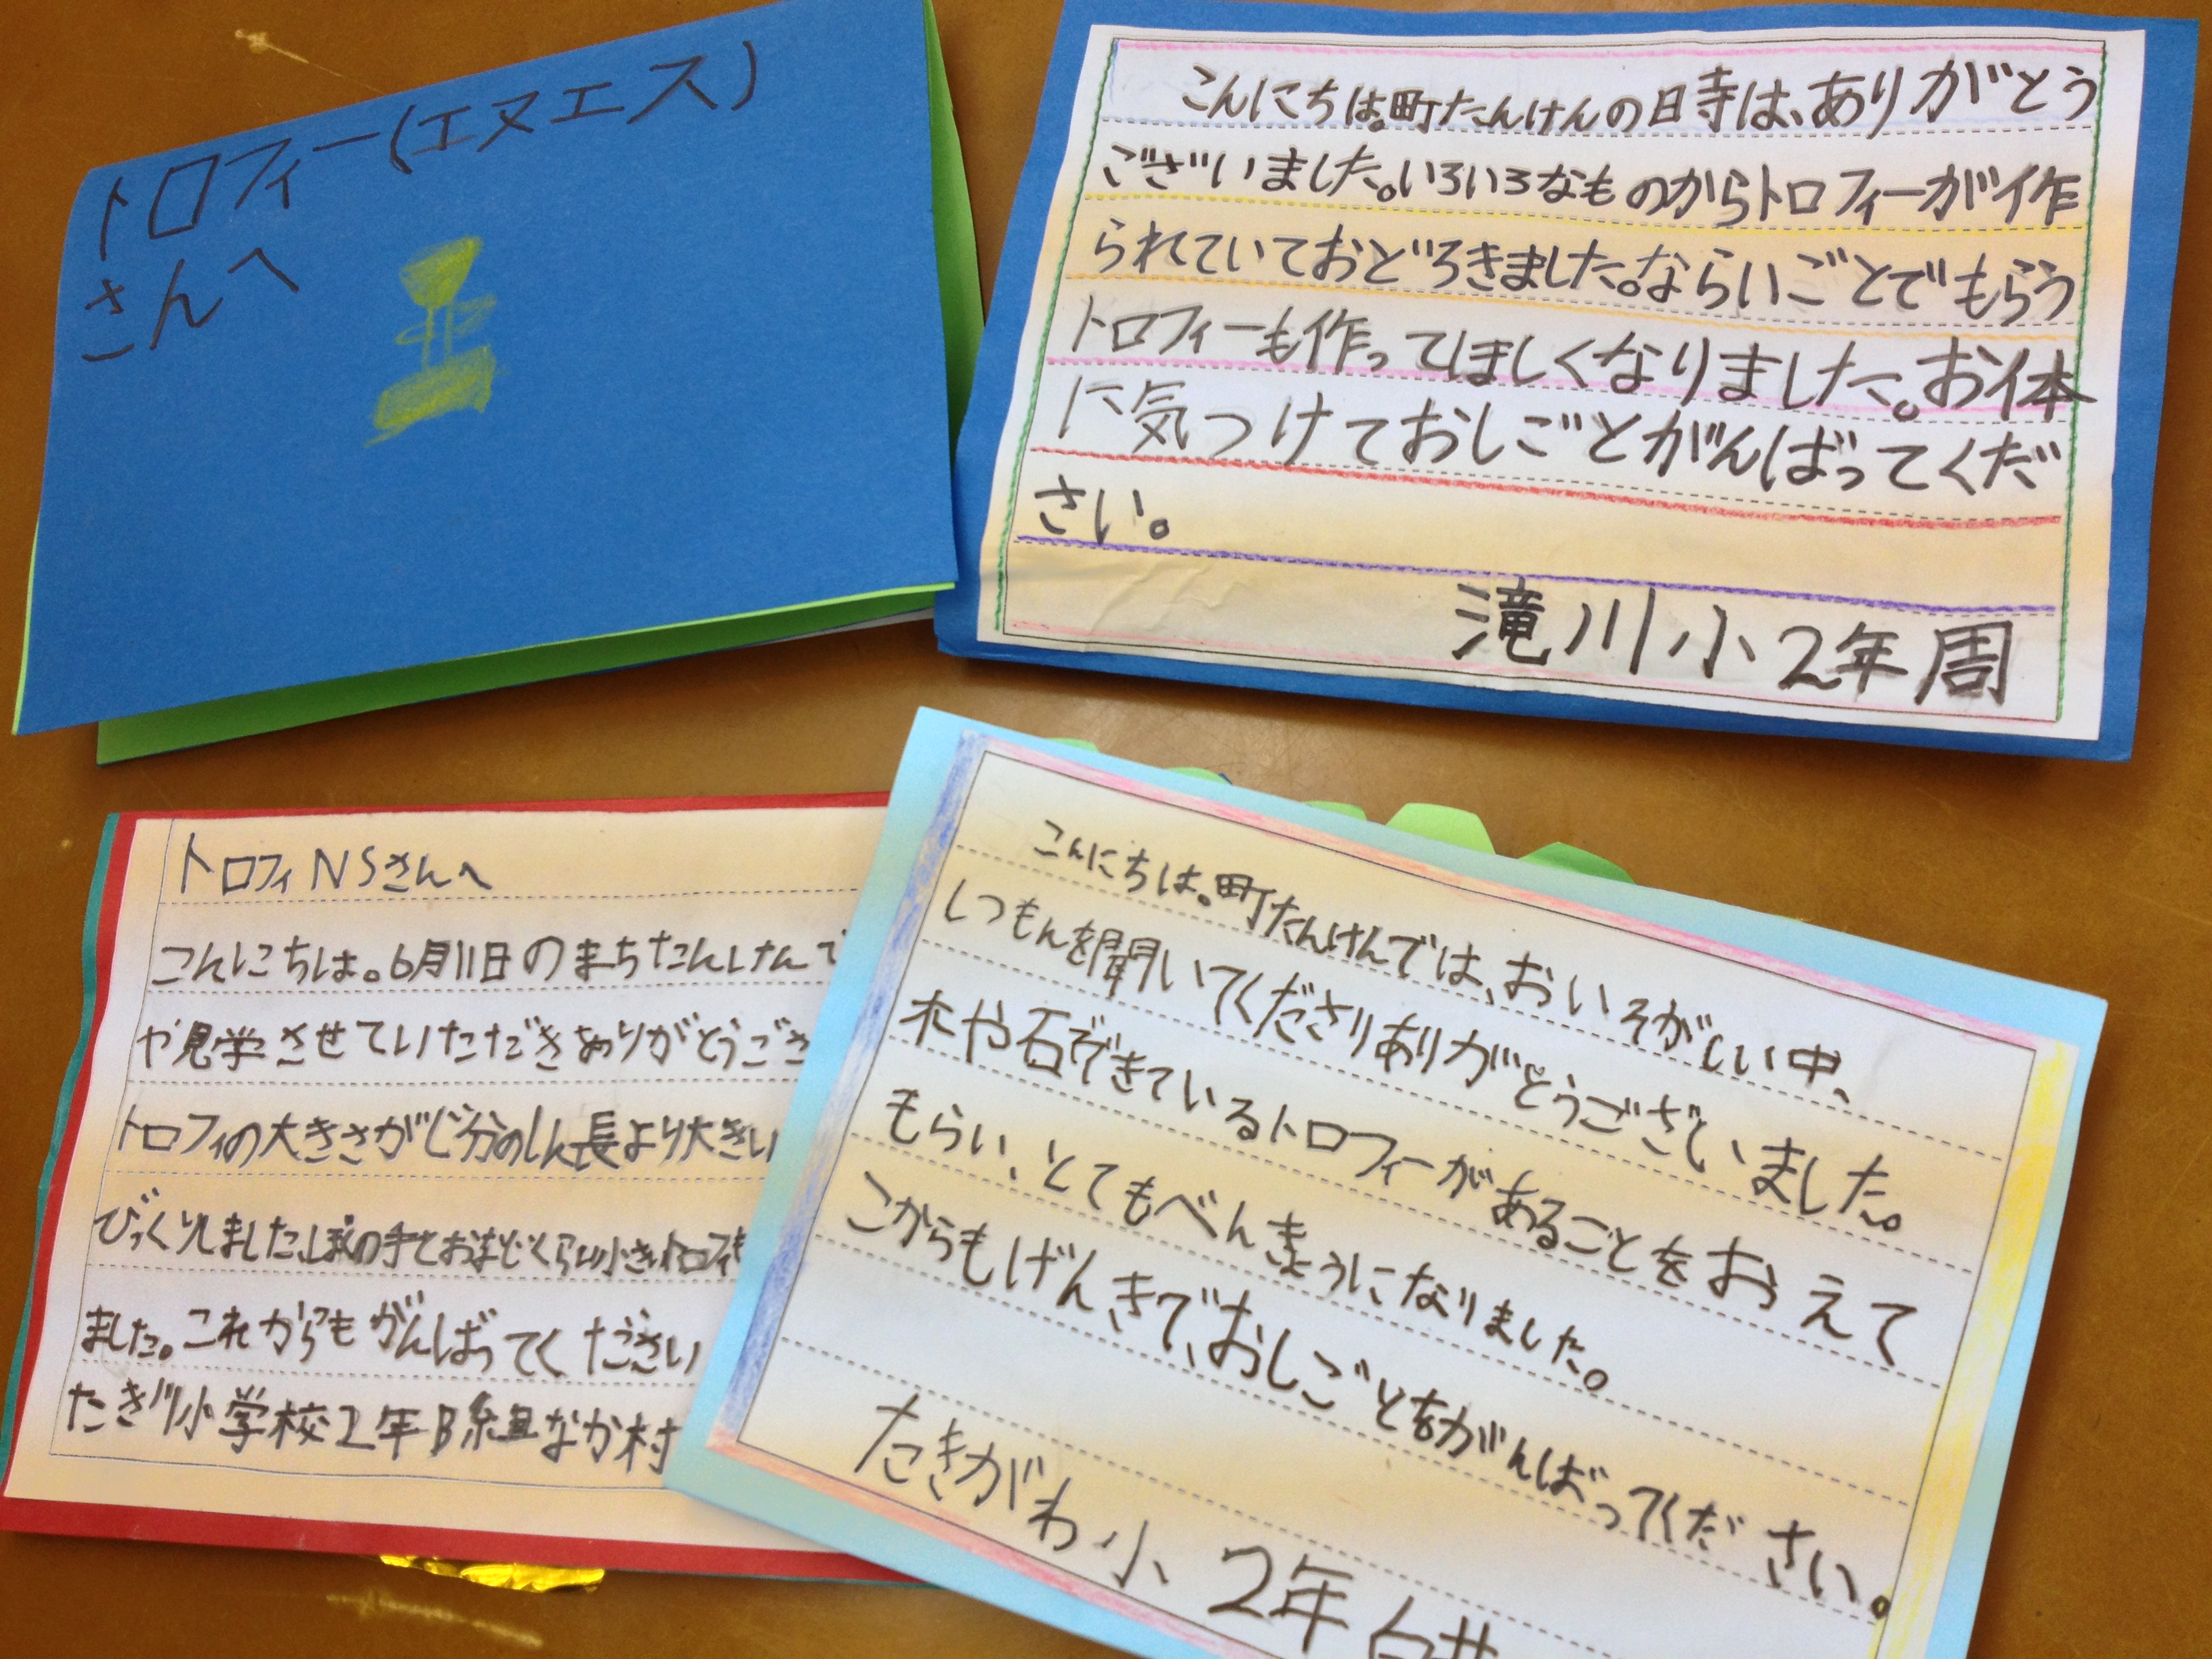 トロフィー(エヌエス)
さんへ
こんにちは。町たんけんの日寺は、ありがとう
ございました。いろいろなものからトロフィーが作
られていておどろきました。ならいごとでもらう
トロフィーも作ってほしくなりました。お体
に気つけておしごとがんばってくだ
さい。
滝川小2年周
トロフィNSさんへ
こんにちは。6月11日のまちたんけんで
や見学させていただきありがとうござ
トロフィの大きさがじ分のしん長より大きい
びっくりしました。ぼくの手とおなじくらい小さいトロフィも
ました。これからもがんばってください
たき川小学校2年B組なか村
こんにちは。町たんけんでは、おいそがしい中、
しつもんを聞いてくださりありがとうございました。
木や石でできているトロフィーがあることをおえて
もらい、とてもべんきょうになりました。
こからもげんきで、おしごとをがんばってください。
たきがわ小2年臼井